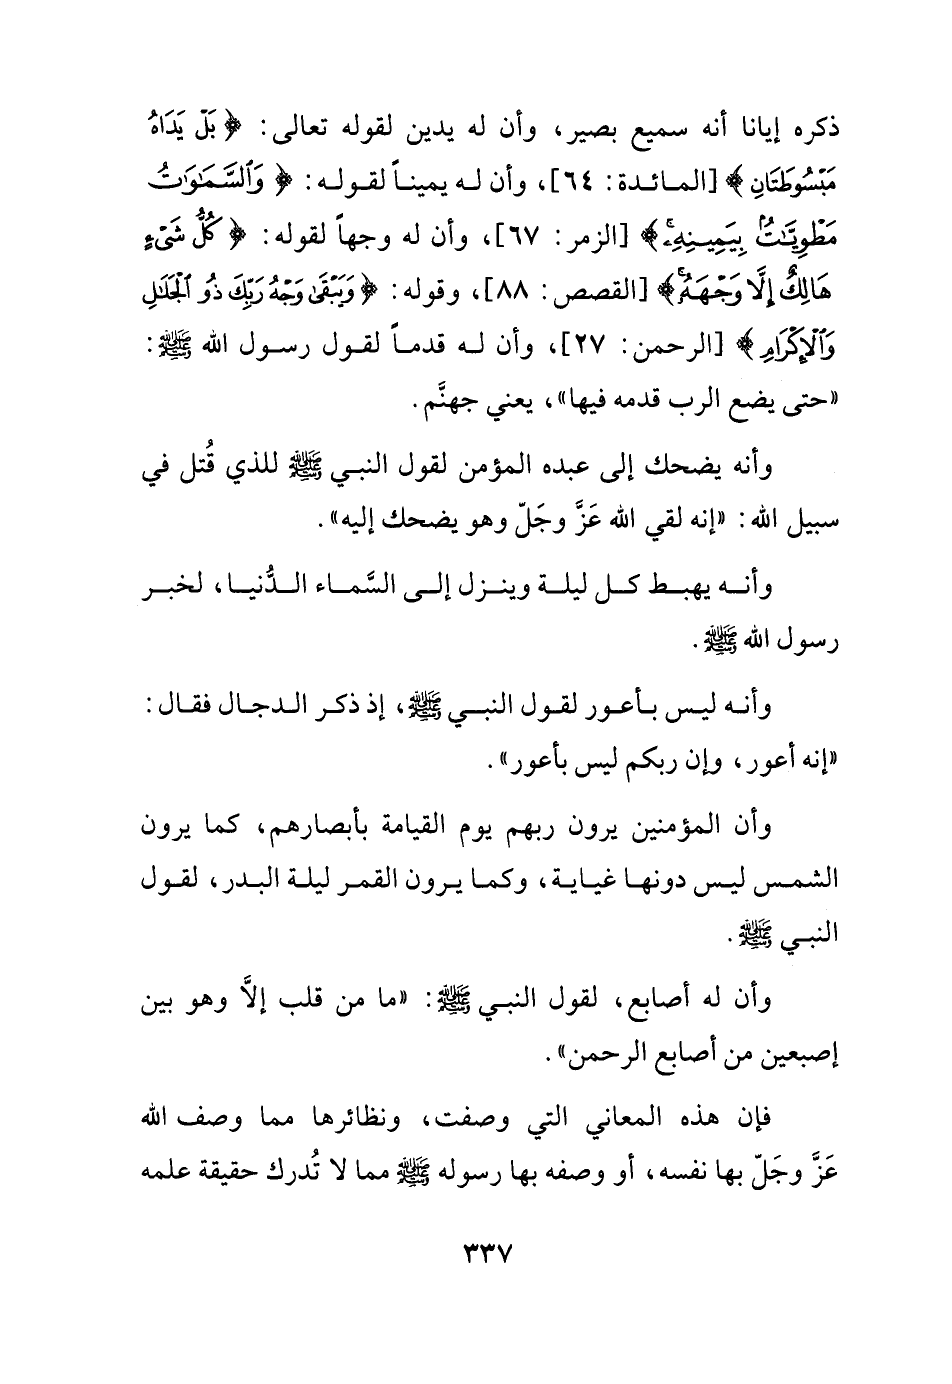 ذكره إيانا أنه سميع بصير، وأن له يدين لقوله تعالى: ﴿بَلْ يَدَاهُ
مَبْسُوطَتَانِ﴾ [المائدة: ٦٤]، وأن له يميناً لقوله: ﴿وَٱلسَّمَٰوَٰتُ
مَطْوِيَّٰتٌۢ بِيَمِينِهِۦۚ﴾ [الزمر: ٦٧]، وأن له وجهاً لقوله: ﴿كُلُّ شَىْءٍ
هَالِكٌ إِلَّا وَجْهَهُۥۚ﴾ [القصص: ٨٨]، وقوله: ﴿وَيَبْقَىٰ وَجْهُ رَبِّكَ ذُو ٱلْجَلَٰلِ
وَٱلْإِكْرَامِ﴾ [الرحمن: ٢٧]، وأن له قدماً لقول رسول الله ﷺ:
«حتى يضع الرب قدمه فيها»، يعني جهنَّم.
وأنه يضحك إلى عبده المؤمن لقول النبي ﷺ للذي قُتل في
سبيل الله: «إنه لقي الله عَزَّ وجَلّ وهو يضحك إليه».
وأنه يهبط كل ليلة وينزل إلى السَّماء الدُّنيا، لخبر
رسول الله ﷺ.
وأنه ليس بأعور لقول النبي ﷺ، إذ ذكر الدجال فقال:
«إنه أعور، وإن ربكم ليس بأعور».
وأن المؤمنين يرون ربهم يوم القيامة بأبصارهم، كما يرون
الشمس ليس دونها غياية، وكما يرون القمر ليلة البدر، لقول
النبي ﷺ.
وأن له أصابع، لقول النبي ﷺ: «ما من قلب إلاَّ وهو بين
إصبعين من أصابع الرحمن».
فإن هذه المعاني التي وصفت، ونظائرها مما وصف الله
عَزَّ وجَلّ بها نفسه، أو وصفه بها رسوله ﷺ مما لا تُدرك حقيقة علمه
٣٣٧